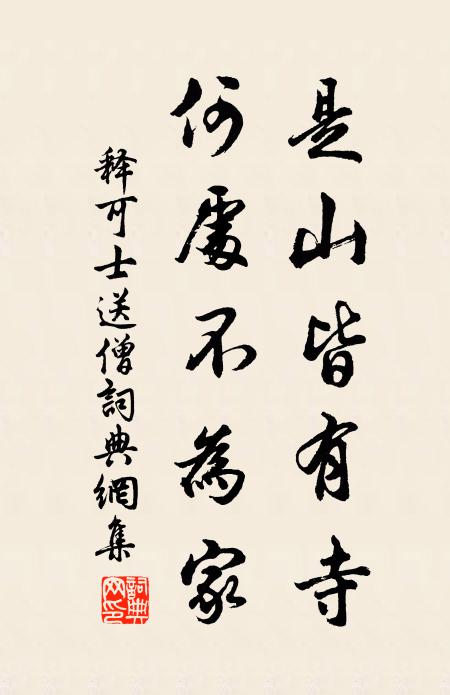 是山皆有寺
何處不為家
释可士送僧詞典網集
詞典網印